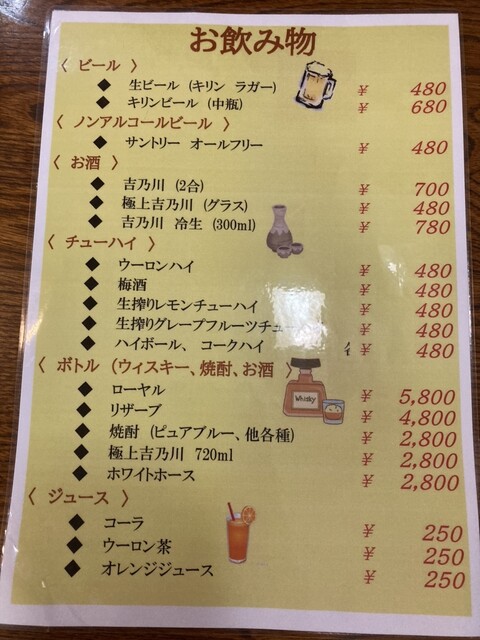 お飲み物
〈 ビール 〉
◆ 生ビール (キリン ラガー) ¥ 480
◆ キリンビール (中瓶) ¥ 680
〈 ノンアルコールビール 〉
◆ サントリー オールフリー ¥ 480
〈 お酒 〉
◆ 吉乃川 (2合) ¥ 700
◆ 極上吉乃川 (グラス) ¥ 480
◆ 吉乃川 冷生 (300ml) ¥ 780
〈 チューハイ 〉
◆ ウーロンハイ ¥ 480
◆ 梅酒 ¥ 480
◆ 生搾りレモンチューハイ ¥ 480
◆ 生搾りグレープフルーツチュー ¥ 480
◆ ハイボール、コークハイ ¥ 480
〈 ボトル (ウィスキー、焼酎、お酒 〉
Whisky
◆ ローヤル ¥ 5,800
◆ リザーブ ¥ 4,800
◆ 焼酎 (ピュアブルー、他各種) ¥ 2,800
◆ 極上吉乃川 720ml ¥ 2,800
◆ ホワイトホース ¥ 2,800
〈 ジュース 〉
◆ コーラ ¥ 250
◆ ウーロン茶 ¥ 250
◆ オレンジジュース ¥ 250